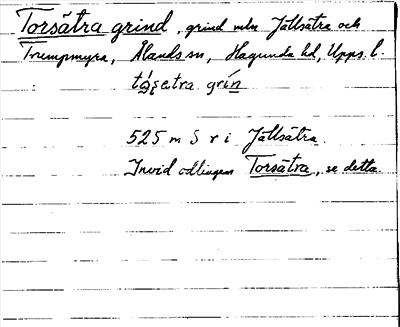 Torsätra grind, grind mln Jällsätra och
Trumpmyra, Ålands sn, Hagunda hd, Upps. l.
grín
525 m S r i Jällsätra.
Invid odlingen Torsätra, se detta.